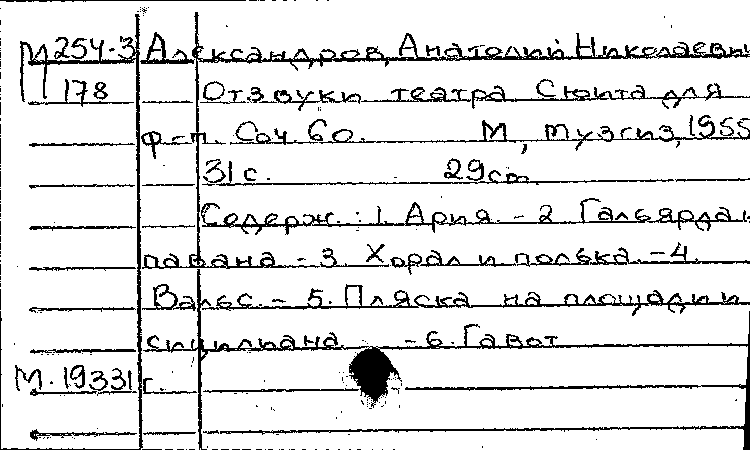 М 254-3 Александров, Анатолий Николаевич
178 Отзвуки театра Сюита для
ф-п. Соч. 60. М, Музгиз, 1955
31 с. 29 см.
Содерж.: 1. Ария. - 2 Гальярда и
павана - 3. Хорал и полька. - 4.
Вальс. - 5. Пляска на площади и
сицилиана - 6. Гавот
М. 19331 г.